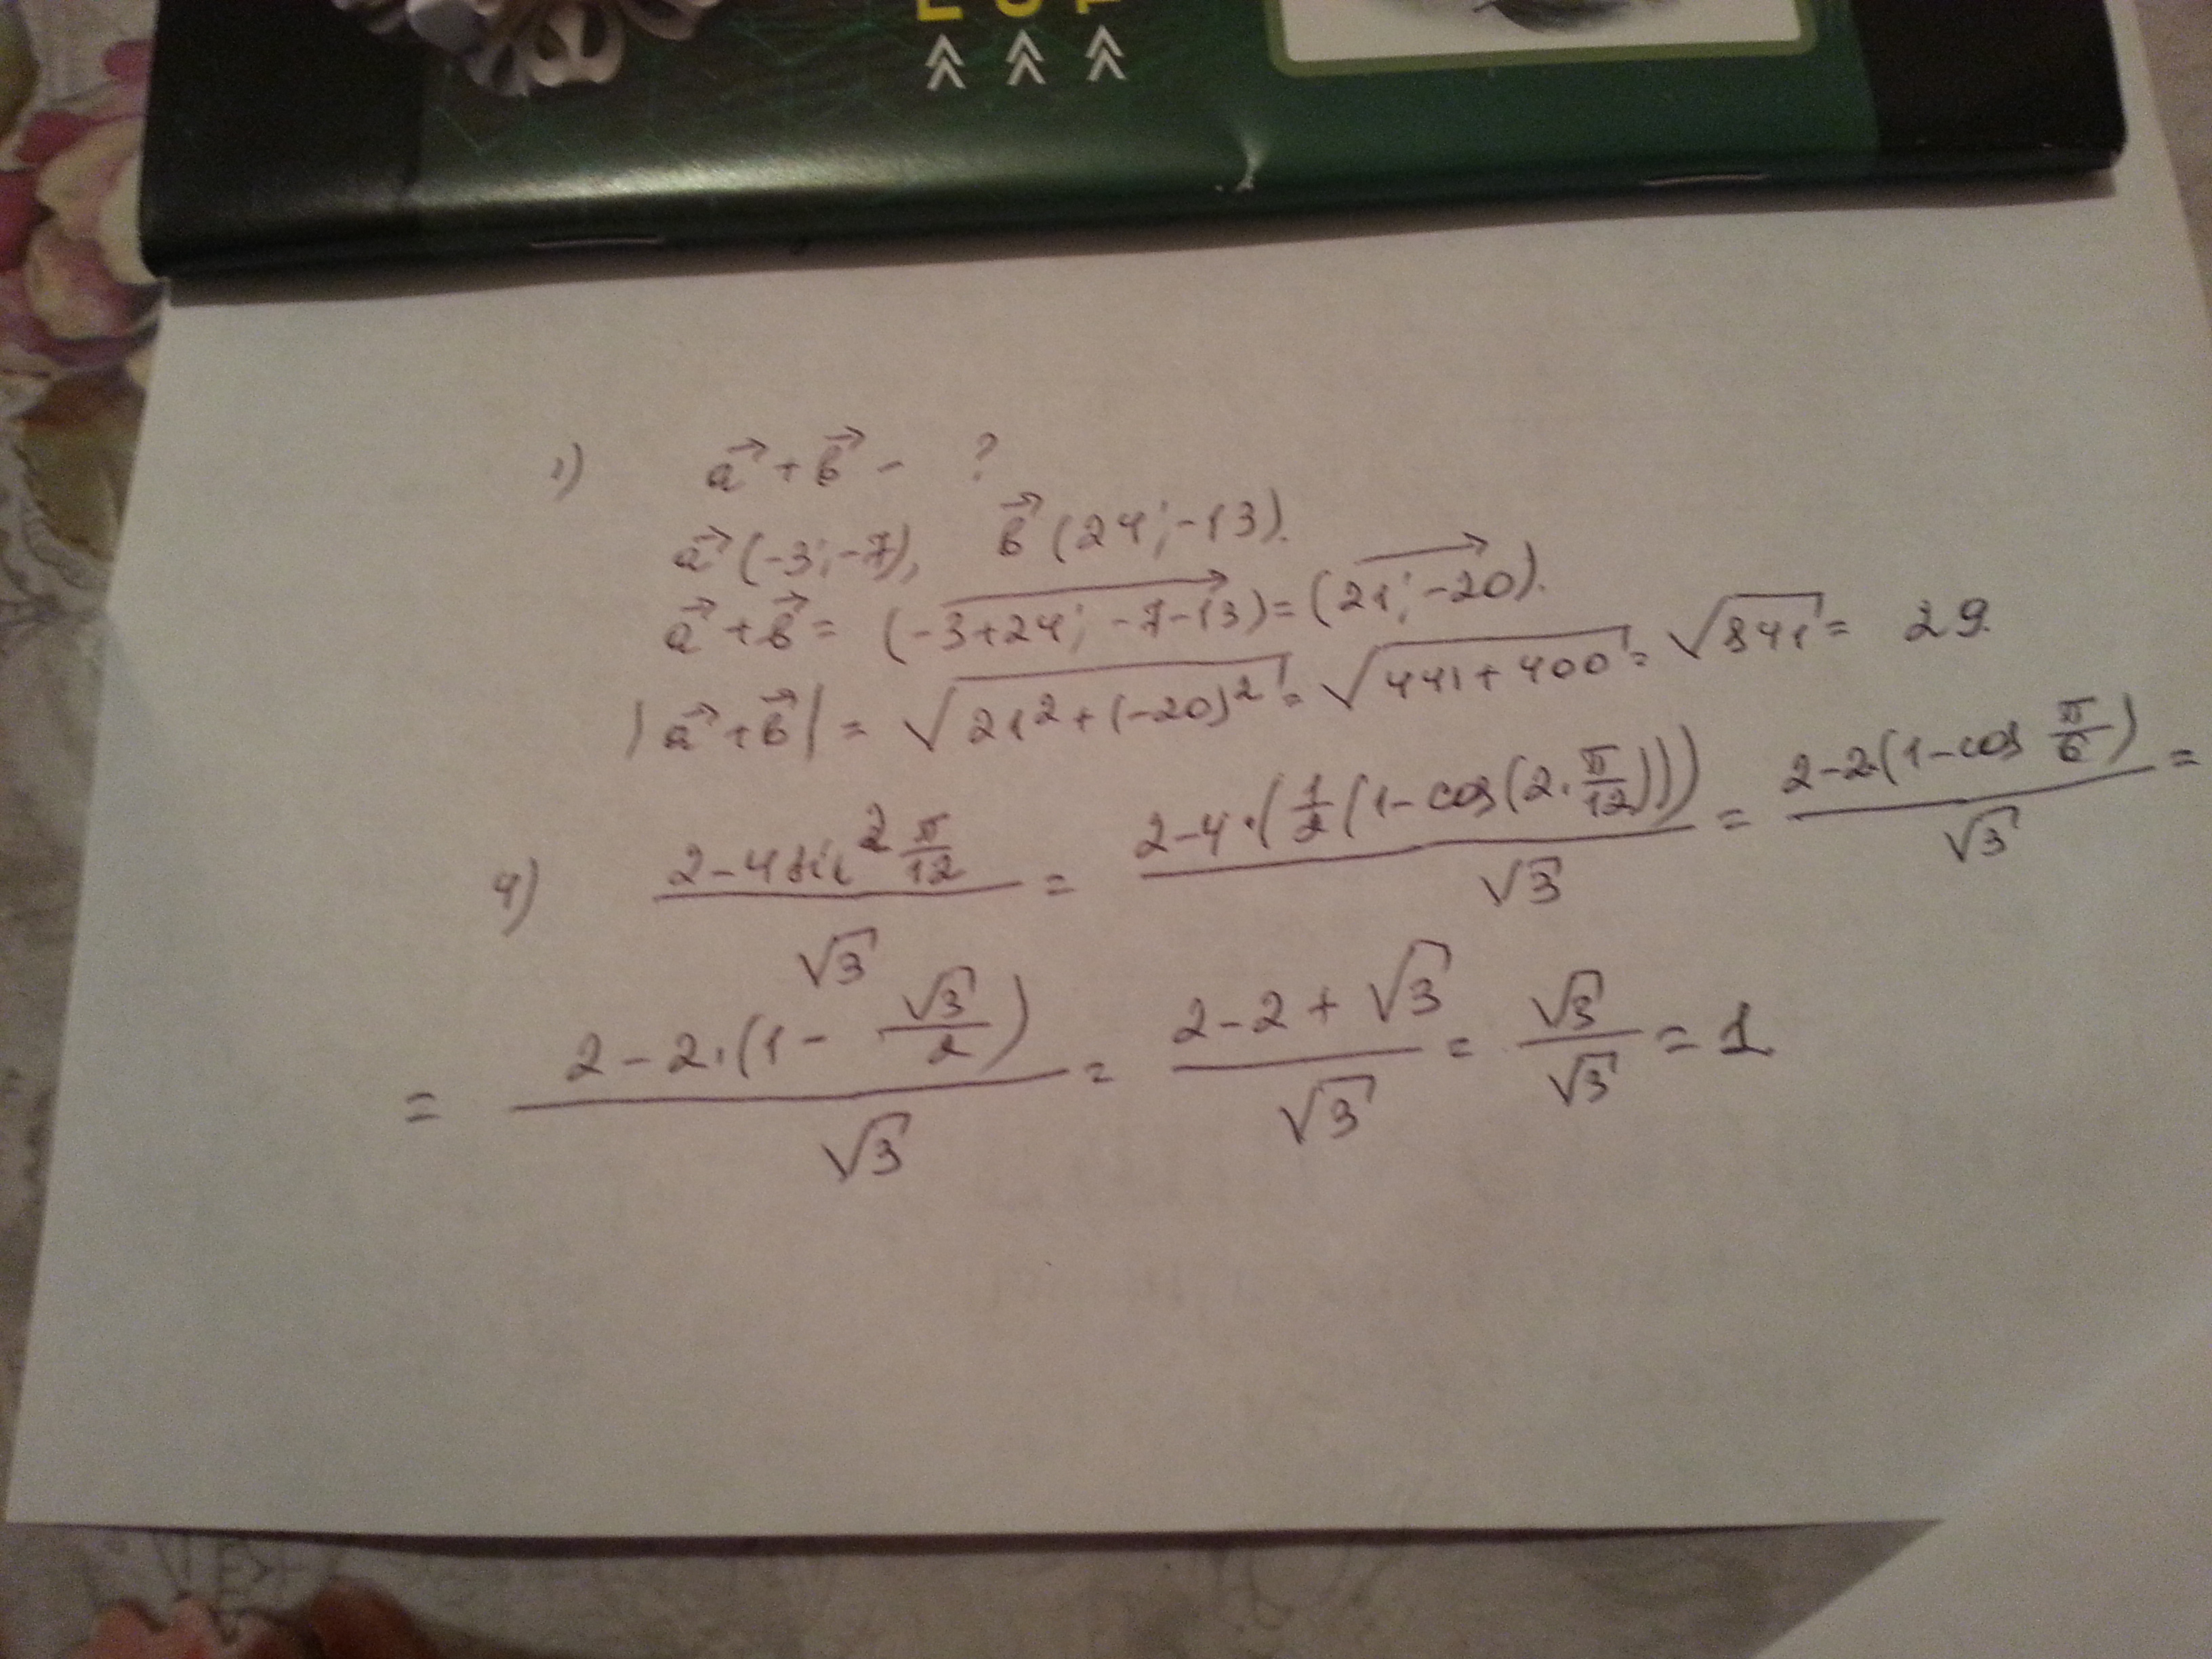 1) a⃗ + b⃗ - ?
a⃗ (-3; -7), b⃗ (24; -13).
a⃗ + b⃗ = (-3+24; -7-13) = (21; -20).
|a⃗ + b⃗| = √(21² + (-20)²) = √(441 + 400) = √841 = 29.
4) (2 - 4 sin² π/12) / √3 = (2 - 4 · (1/2 (1 - cos(2 · π/12)))) / √3 = (2 - 2 · (1 - cos π/6)) / √3 =
= (2 - 2 · (1 - √3/2)) / √3 = (2 - 2 + √3) / √3 = √3/√3 = 1